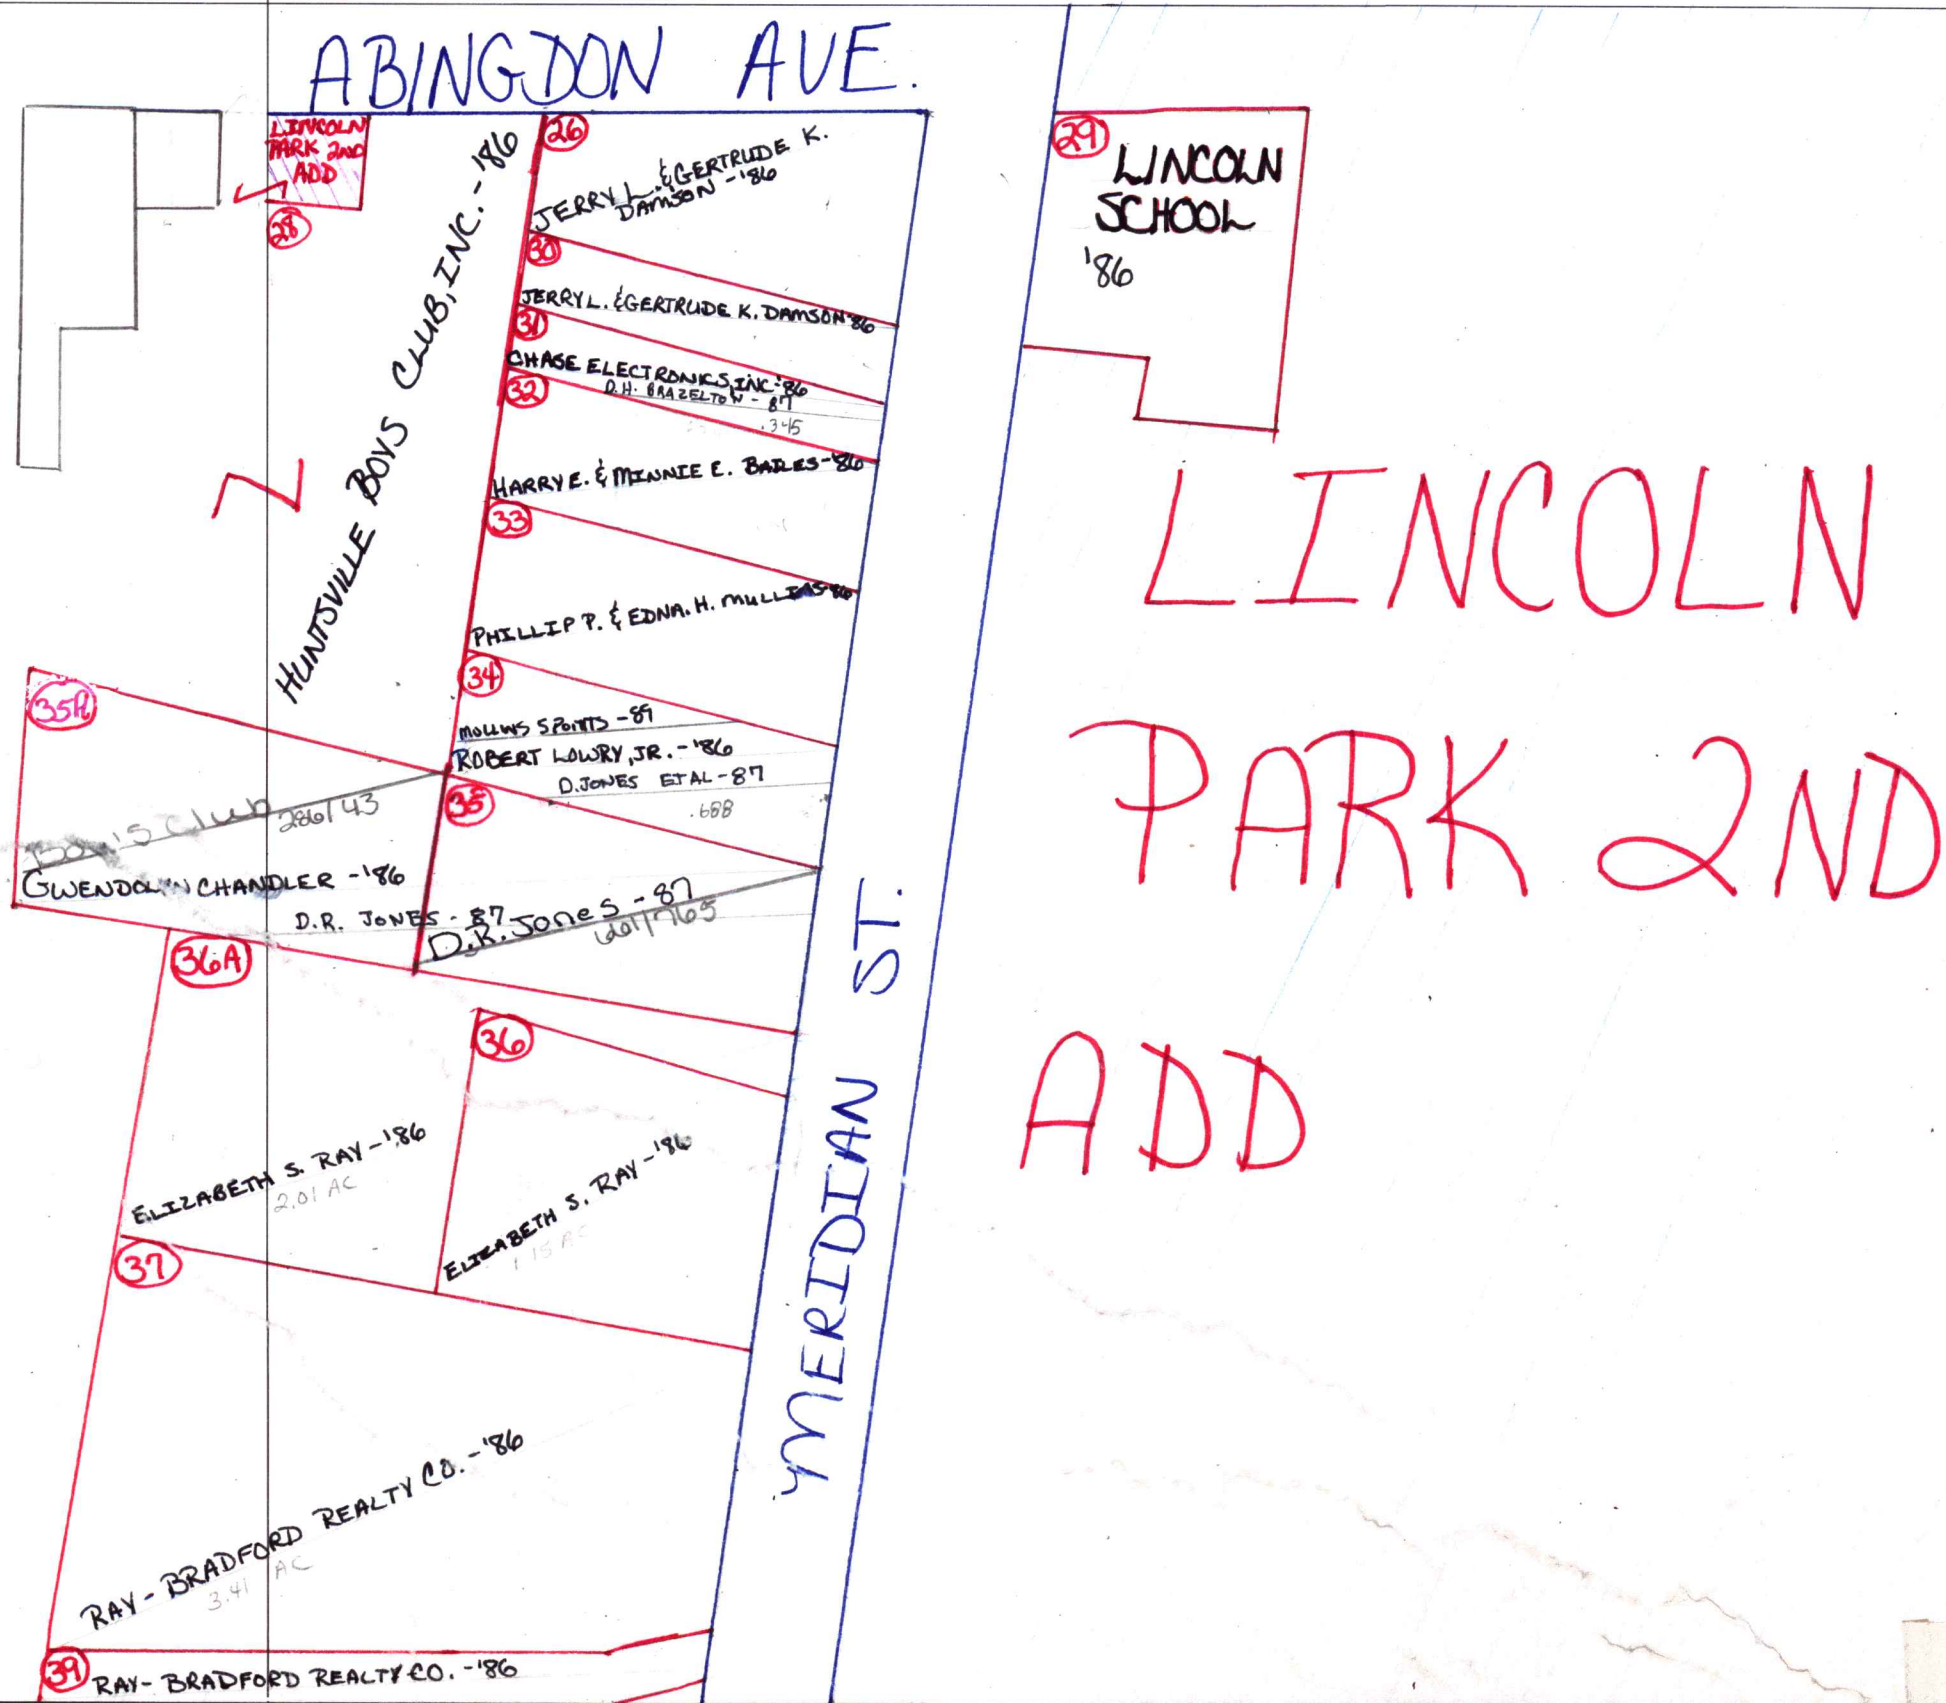 ABINGDON AVE.
LINCOLN
PARK 2ND
ADD
28
HUNTSVILLE BOYS CLUB, INC. - '86
26
JERRY L. & GERTRUDE K.
DAMSON - '86
29
LINCOLN
SCHOOL
'86
30
JERRY L. & GERTRUDE K. DAMSON '86
31
CHASE ELECTRONICS, INC - '86
D.H. BRAZELTON - 87
.345
32
HARRY E. & MINNIE E. BAILES - '86
33
PHILLIP P. & EDNA. H. MULLINS '86
34
MOLLWS SPOINTS - 89
ROBERT LOWRY, JR. - '86
D. JONES ET AL - 87
.688
35A
35
Boy's Club
286/143
GWENDOLYN CHANDLER - '86
D.R. JONES - 87
D.R. Jones - 87
661/765
36A
36
ELIZABETH S. RAY - '86
2.01 AC
ELIZABETH S. RAY - '86
1.15 AC
37
RAY - BRADFORD REALTY CO. - '86
3.41 AC
39
RAY - BRADFORD REALTY CO. - '86
MERIDIAN ST.
LINCOLN
PARK 2ND
ADD